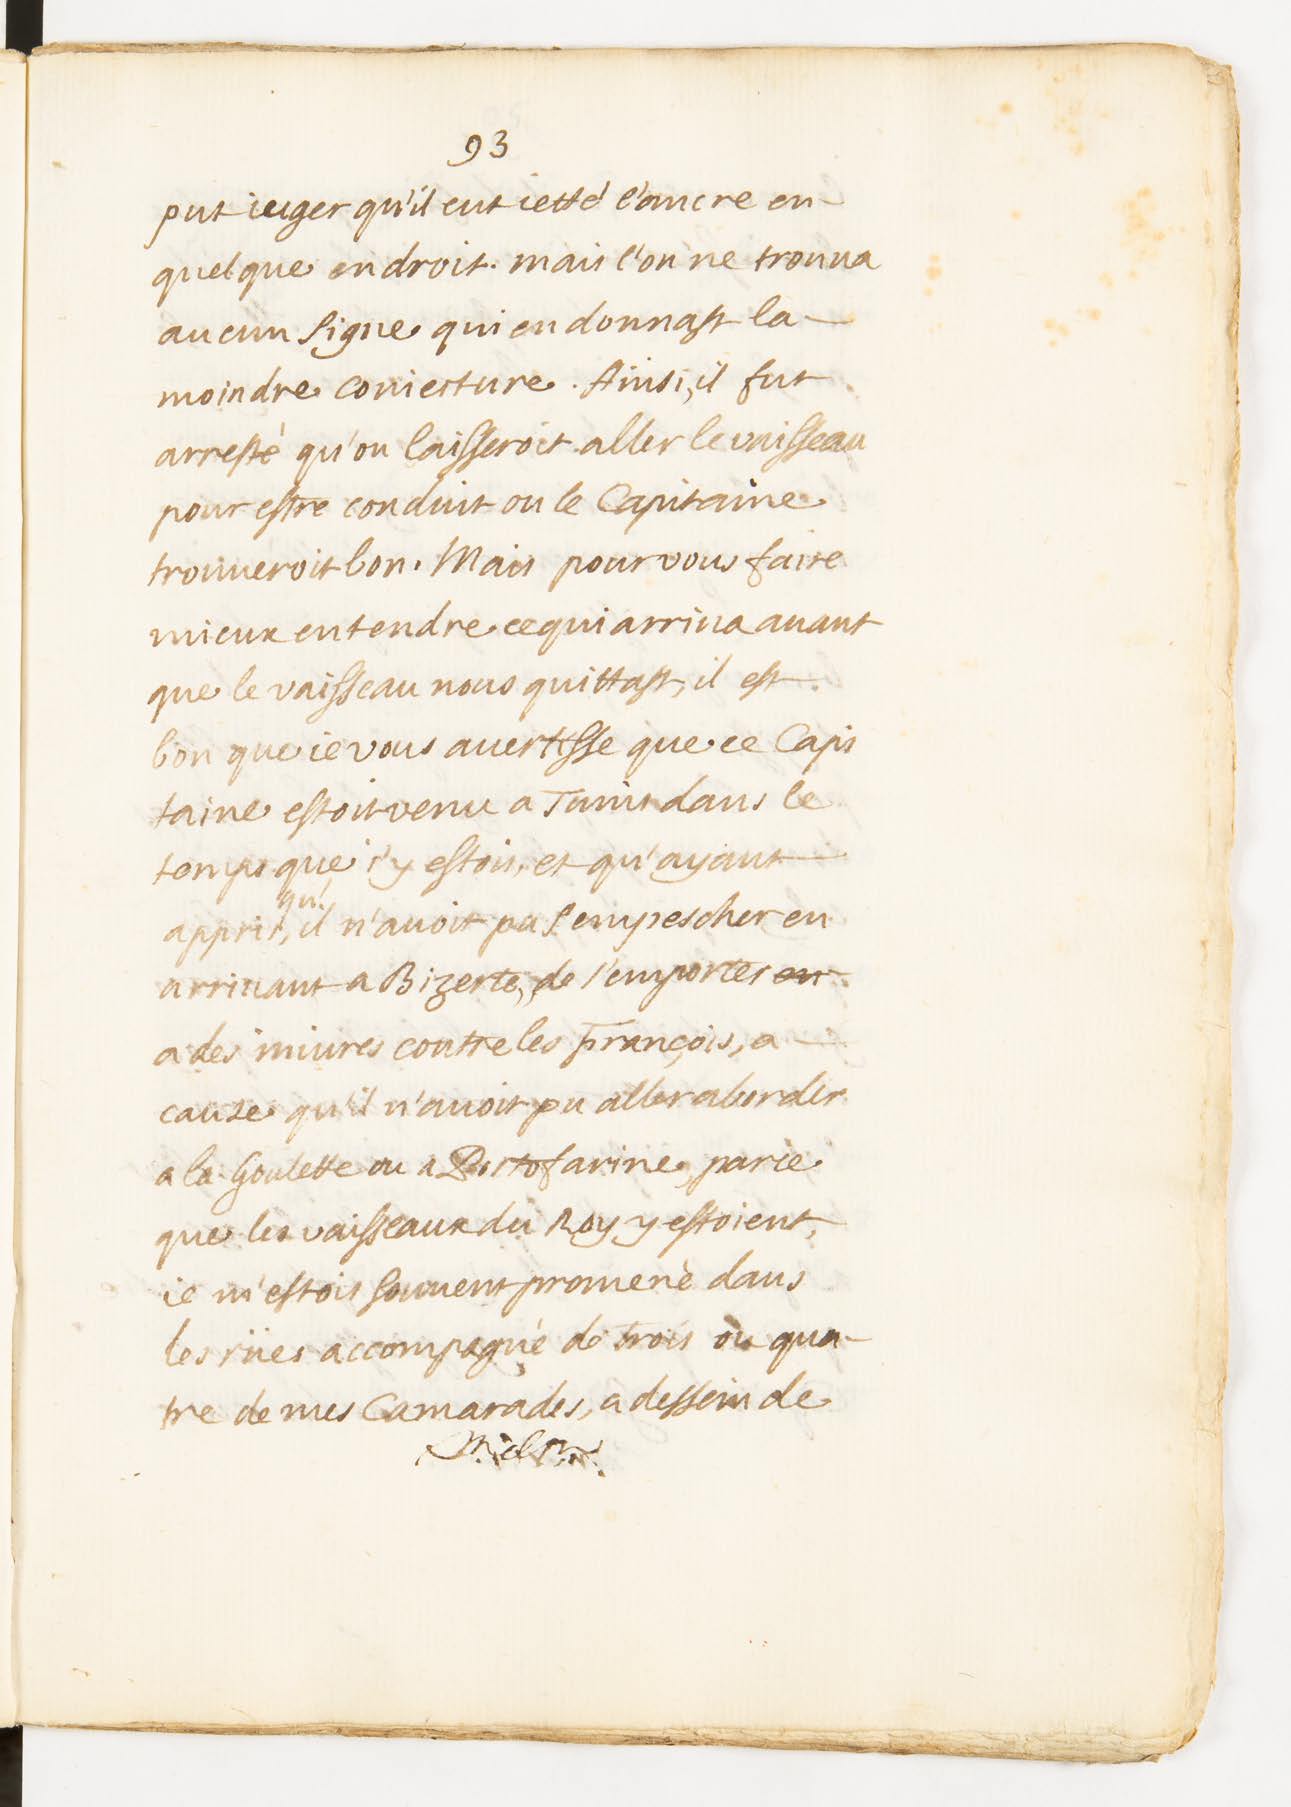 93
put iuger qu'il eut ietté l'ancre en-
quelque endroit. mais l'on ne trouua
aucun signe qui en donnast la-
moindre coniecture. Ainsi, il fut
arresté qu'on laisseroit aller le vaisseau
pour estre conduit ou le Capitaine
trouueroit bon. Mais pour vous faire
mieux entendre ce qui arriua auant
que le vaisseau nous quittast, il est
bon que ie vous auertisse que ce Capi
taine estoit venu a Tunis dans le
temps que i'y estois, et qu'ayant
qu'
appris, il n'auoit pu s'empescher en
arriuant a Bizerte, de s'emporter en
a des iniures contre les François, a
cause qu'il n'auoit pu aller aborder
a la Goulette ou a Portofarine, parce
que les vaisseaux du Roy y estoient,
ie m'estois souuent promené dans
les rües accompagné de trois ou qua-
tre de mes Camarades, a dessein de